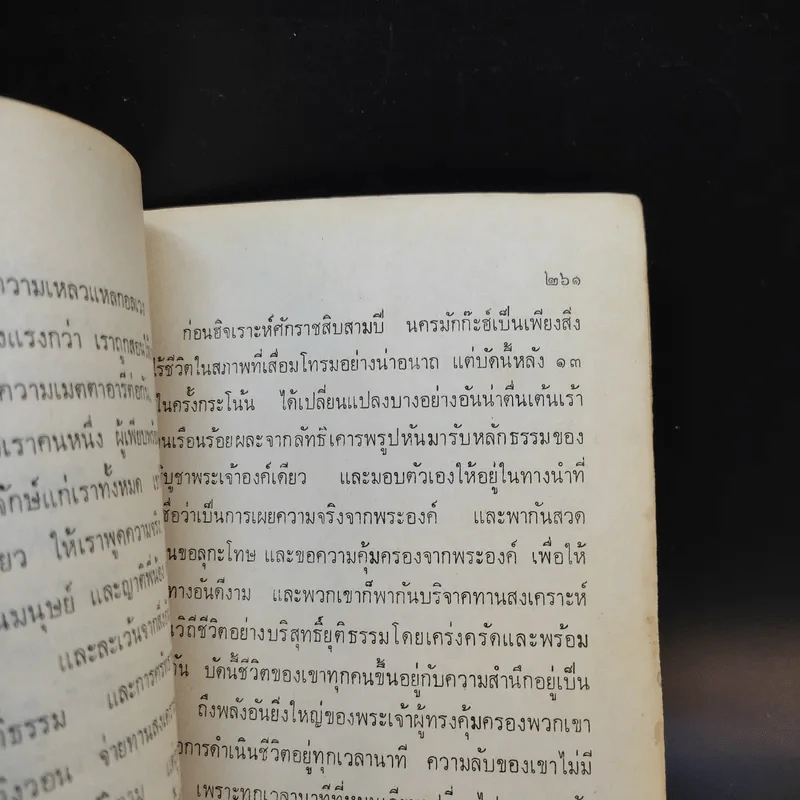 ความเหลวแหลก
แรงกว่า เราถูกสอนให้
ความเมตตาอารีต่อกัน
เราคนหนึ่ง ผู้เพียบพร้อม
จักษ์แก่เราทั้งหมด
ยว ให้เราพูดความจริง
นมนุษย์ และญาติพี่น้อง
และละเว้นจาก
และการ
ธรรม
วิงวอน จ่ายทาน
๒๖๑
ก่อนฮิจเราะห์ศักราชสิบสามปี นครมักก๊ะฮ์เป็นเพียงสิ่ง
ไร้ชีวิตในสภาพที่เสื่อมโทรมอย่างน่าอนาถ แต่บัดนี้หลัง ๑๓
ในครั้งกระโน้น ได้เปลี่ยนแปลงบางอย่างอันน่าตื่นเต้นเร้า
นเรือนร้อยผละจากลัทธิเคารพรูปหันมารับหลักธรรมของ
บูชาพระเจ้าองค์เดียว และมอบตัวเองให้อยู่ในทางนำที่
ชื่อว่าเป็นการเผยความจริงจากพระองค์ และพากันสวด
นขอลุกะโทษ และขอความคุ้มครองจากพระองค์ เพื่อให้
ทางอันดีงาม และพวกเขาก็พากันบริจาคทานสงเคราะห์
วิถีชีวิตอย่างบริสุทธิ์ยุติธรรมโดยเคร่งครัดและพร้อม
กัน บัดนี้ชีวิตของเขาทุกคนขึ้นอยู่กับความสำนึกอยู่เป็น
ถึงพลังอันยิ่งใหญ่ของพระเจ้าผู้ทรงคุ้มครองพวกเขา
งการดำเนินชีวิตอยู่ทุกเวลานาที ความลับของเขาไม่มี
เพราะทุกเวลานาที